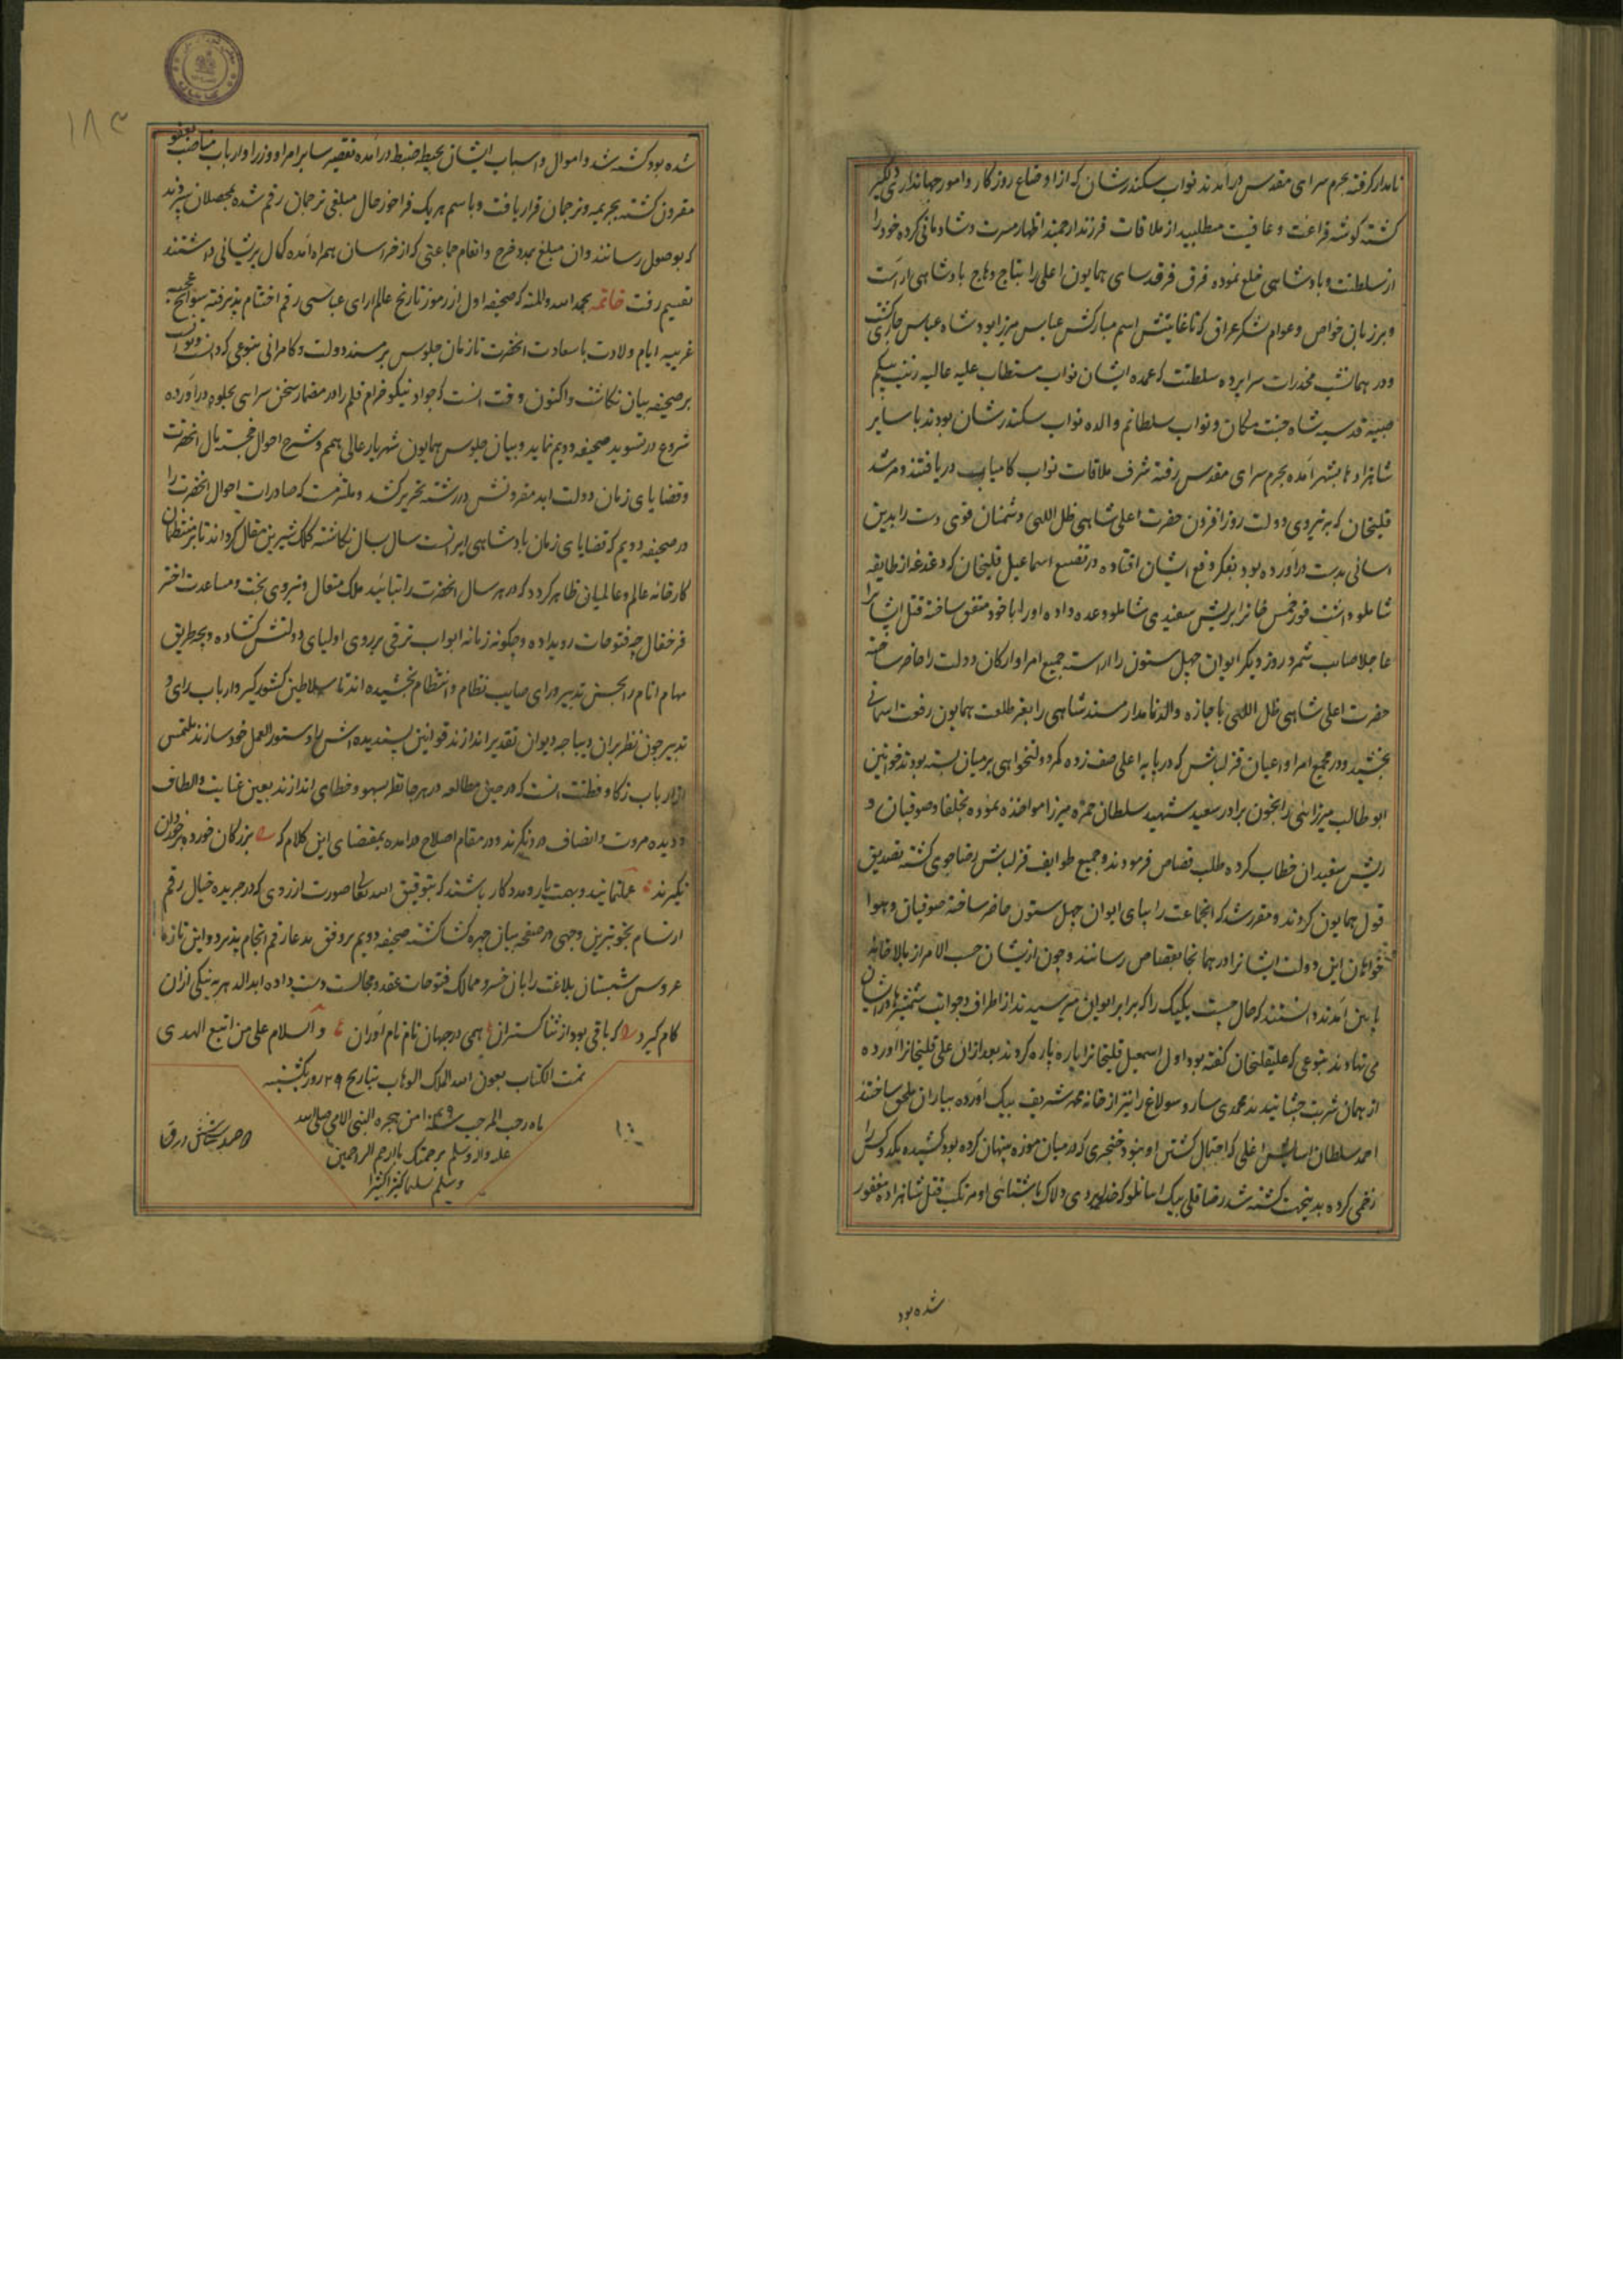 نامدار گرفته بحرم سرای مقدس درآمدند نواب سکندرشان که از اوضاع روزگار و امور جهانداری دلگیر
گشته گوشه فراغت و عافیت مطلبید از ملاقات فرزند ارجمند اظهار مسرت و شادمانی کرده خود را
از سلطنت و پادشاهی خلع نموده فرق فرقدسای همایون اعلی را بتاج وهاج پادشاهی اراست
و بر زبان خواص و عوام لشکر عراق که تا غایتش اسم مبارکش عباس میرزا بود شاه عباس جاری گشت
و در همانشب مخدرات سراپرده سلطنت که عمده ایشان نواب مستطاب علیه عالیه زینب بیگم
صبیه قدسیه شاه جنت مکان و نواب سلطانم والده نواب سکندرشان بودند با سایر
شاهزادها بشهر آمده بحرم سرای مقدس رفته شرف ملاقات نواب کامیاب دریافتند و مرشد
قلیخان که به نیروی دولت روزافزون حضرت اعلی شاهی ظل اللهی دشمنان قوی دست را بدین
اسانی بدست درآورده بود بفکر دفع ایشان افتاده در تضییع اسماعیل قلیخان که دغدغه از طایفه
شاملو داشت فورخمس خانرا بریش سفیدی شاملو وعده داده او را با خود متفق ساخته قتل ایشانرا
عاجلا صایب شمرد روز دیگر ایوان چهل ستون را اراسته جمیع امرا و ارکان دولت را حاضر ساخته
حضرت اعلی شاهی ظل اللهی باجازه والد نامدار مسند شاهی را بفر طلعت همایون رفعت اسمانی
بخشید و در مجمع امرا و اعیان قزلباش که در پایه اعلی صف زده کمر دولتخواهی بر میان بسته بودند خوانین
ابوطالب میرزائی را بخون برادر سعید شهید سلطان حمزه میرزا مواخذه نموده بخلفا و صوفیان و
ریش سفیدان خطاب کرده طلب قصاص فرمودند و جمیع طوایف قزلباش رضاجوی گشته تصدیق
قول همایون کردند و مقرر شد که انجماعت را بپای ایوان چهل ستون حاضر ساخته صوفیان و هوا
خواهان این دولت ایشانرا در همانجا بقصاص رسانند و چون ازیشان حسب الامر از بالا خانه
پایین آمدند دانستند که حال چیست یکیک را که برابر ایوان میرسیدند از اطراف و جوانب شمشیرها در ایشان
می نهادند بنوعی که علیقلیخان گفته بود اول اسمعیل قلیخانرا پاره پاره کردند بعد از ان علی قلیخانرا اورده
از همان شربت چشانیدند محمدی ساروسولاغ را نیز از خانه محمد شریف بیک آورده بیاران ملحق ساختند
احمد سلطان اغلی که احتمال کشتن او نبود خنجری که در میان موزه پنهان کرده بود کشیده یکدو کس را
زخمی کرده بدبخت کشته شد رضاقلی بیک اینانلو که خدایوردی دلاک باشتباهی او مرتکب قتل شاهزاده مغفور
شده بود
۱۸۳
شده بود کشته شد و اموال و اسباب ایشان بحیطه ضبط درآمده تقصیر سایر امرا و وزرا و ارباب مناصب بعفو
مقرون گشته بجریمه و ترجمان قرار یافت و باسم هر یک فراخور حال مبلغی ترجمان رقم شده بمحصلان سپردند
که بوصول رسانند و ان مبلغ بمدد خرج و انعام جماعتی که از خراسان همراه آمده کمال پریشانی داشتند
تقسیم رفت خاتمه بحمد الله و المنه که صحیفه اول از رموز تاریخ عالم ارای عباسی رقم اختتام پذیرفته سوانح عجیبه
غریبه ایام ولادت با سعادت انحضرت تا زمان جلوس بر مسند دولت و کامرانی بنوعی که دانست و توانست
بر صحیفه بیان نگاشت و اکنون وقت انست که جواد نیکو خرام قلم را در مضمار سخن سرایی بجلوه درآورده
شروع در تسوید صحیفه دویم نماید و بیان جلوس همایون شهریار عالی همم و شرح احوال خجسته مآل انحضرت
و قضایای زمان دولت ابد مقرونش در رشته تحریر کشد و ملتزمست که صادرات احوال انحضرت را
در صحیفه دویم که قضایای زمان پادشاهی ایرانست سال بسال نگاشته کلک شیرین مقال گرداند تا بر منتظمان
کارخانه عالم و عالمیان ظاهر گردد که در هر سال انحضرت را بتائید ملک متعال و نیروی بخت و مساعدت اختر
فرخفال چه فتوحات رویداده و چگونه زمانه ابواب ترقی بر روی اولیای دولتش گشاده و بچه طریق
مهام انام را بحسن تدبیر و رای صایب نظام و انتظام بخشیده اند تا سلاطین کشورگیر و ارباب رای و
تدبیر چون نظر بران دیباجه دیوان تقدیر اندازند قوانین پسندیده اش را دستور العمل خود سازند ملتمس
از ارباب زکا و فطنت انست که در حین مطالعه در هر جا نظر بسهو و خطای اندازند بعین عنایت و الطاف
و دیده مروت و انصاف درنگرند و در مقام اصلاح درآمده بمقتضای این کلام که بزرگان خورده بر خوردان
نگیرند عمل نمایند و بهمت یار و مددکار باشند که بتوفیق الله تعالی صورت ارزوی که در جریده خیال رقم
ارتسام بخوبترین وجهی در صفحه بیان چهره گشا گشته صحیفه دویم بر وفق مدعا رقم انجام پذیرد و این تازه
عروس شبستان بلاغت را بان خسرو ممالک فتوحات عقد و مجالست دست داده ابدالدهر به نیکی از ان
کام گیرد که باقی بود از ثنا گستران همی در جهان نام نام آوران و السلام علی من اتبع الهدی
تمت الکتاب بعون الله الملک الوهاب بتاریخ ۲۹ روز یکشنبه
ماه رجب المرجب سنه من هجره النبی الامی صلی الله
علیه و اله و سلم برحمتک یا ارحم الراحمین
و سلم تسلیما کثیرا کثیرا